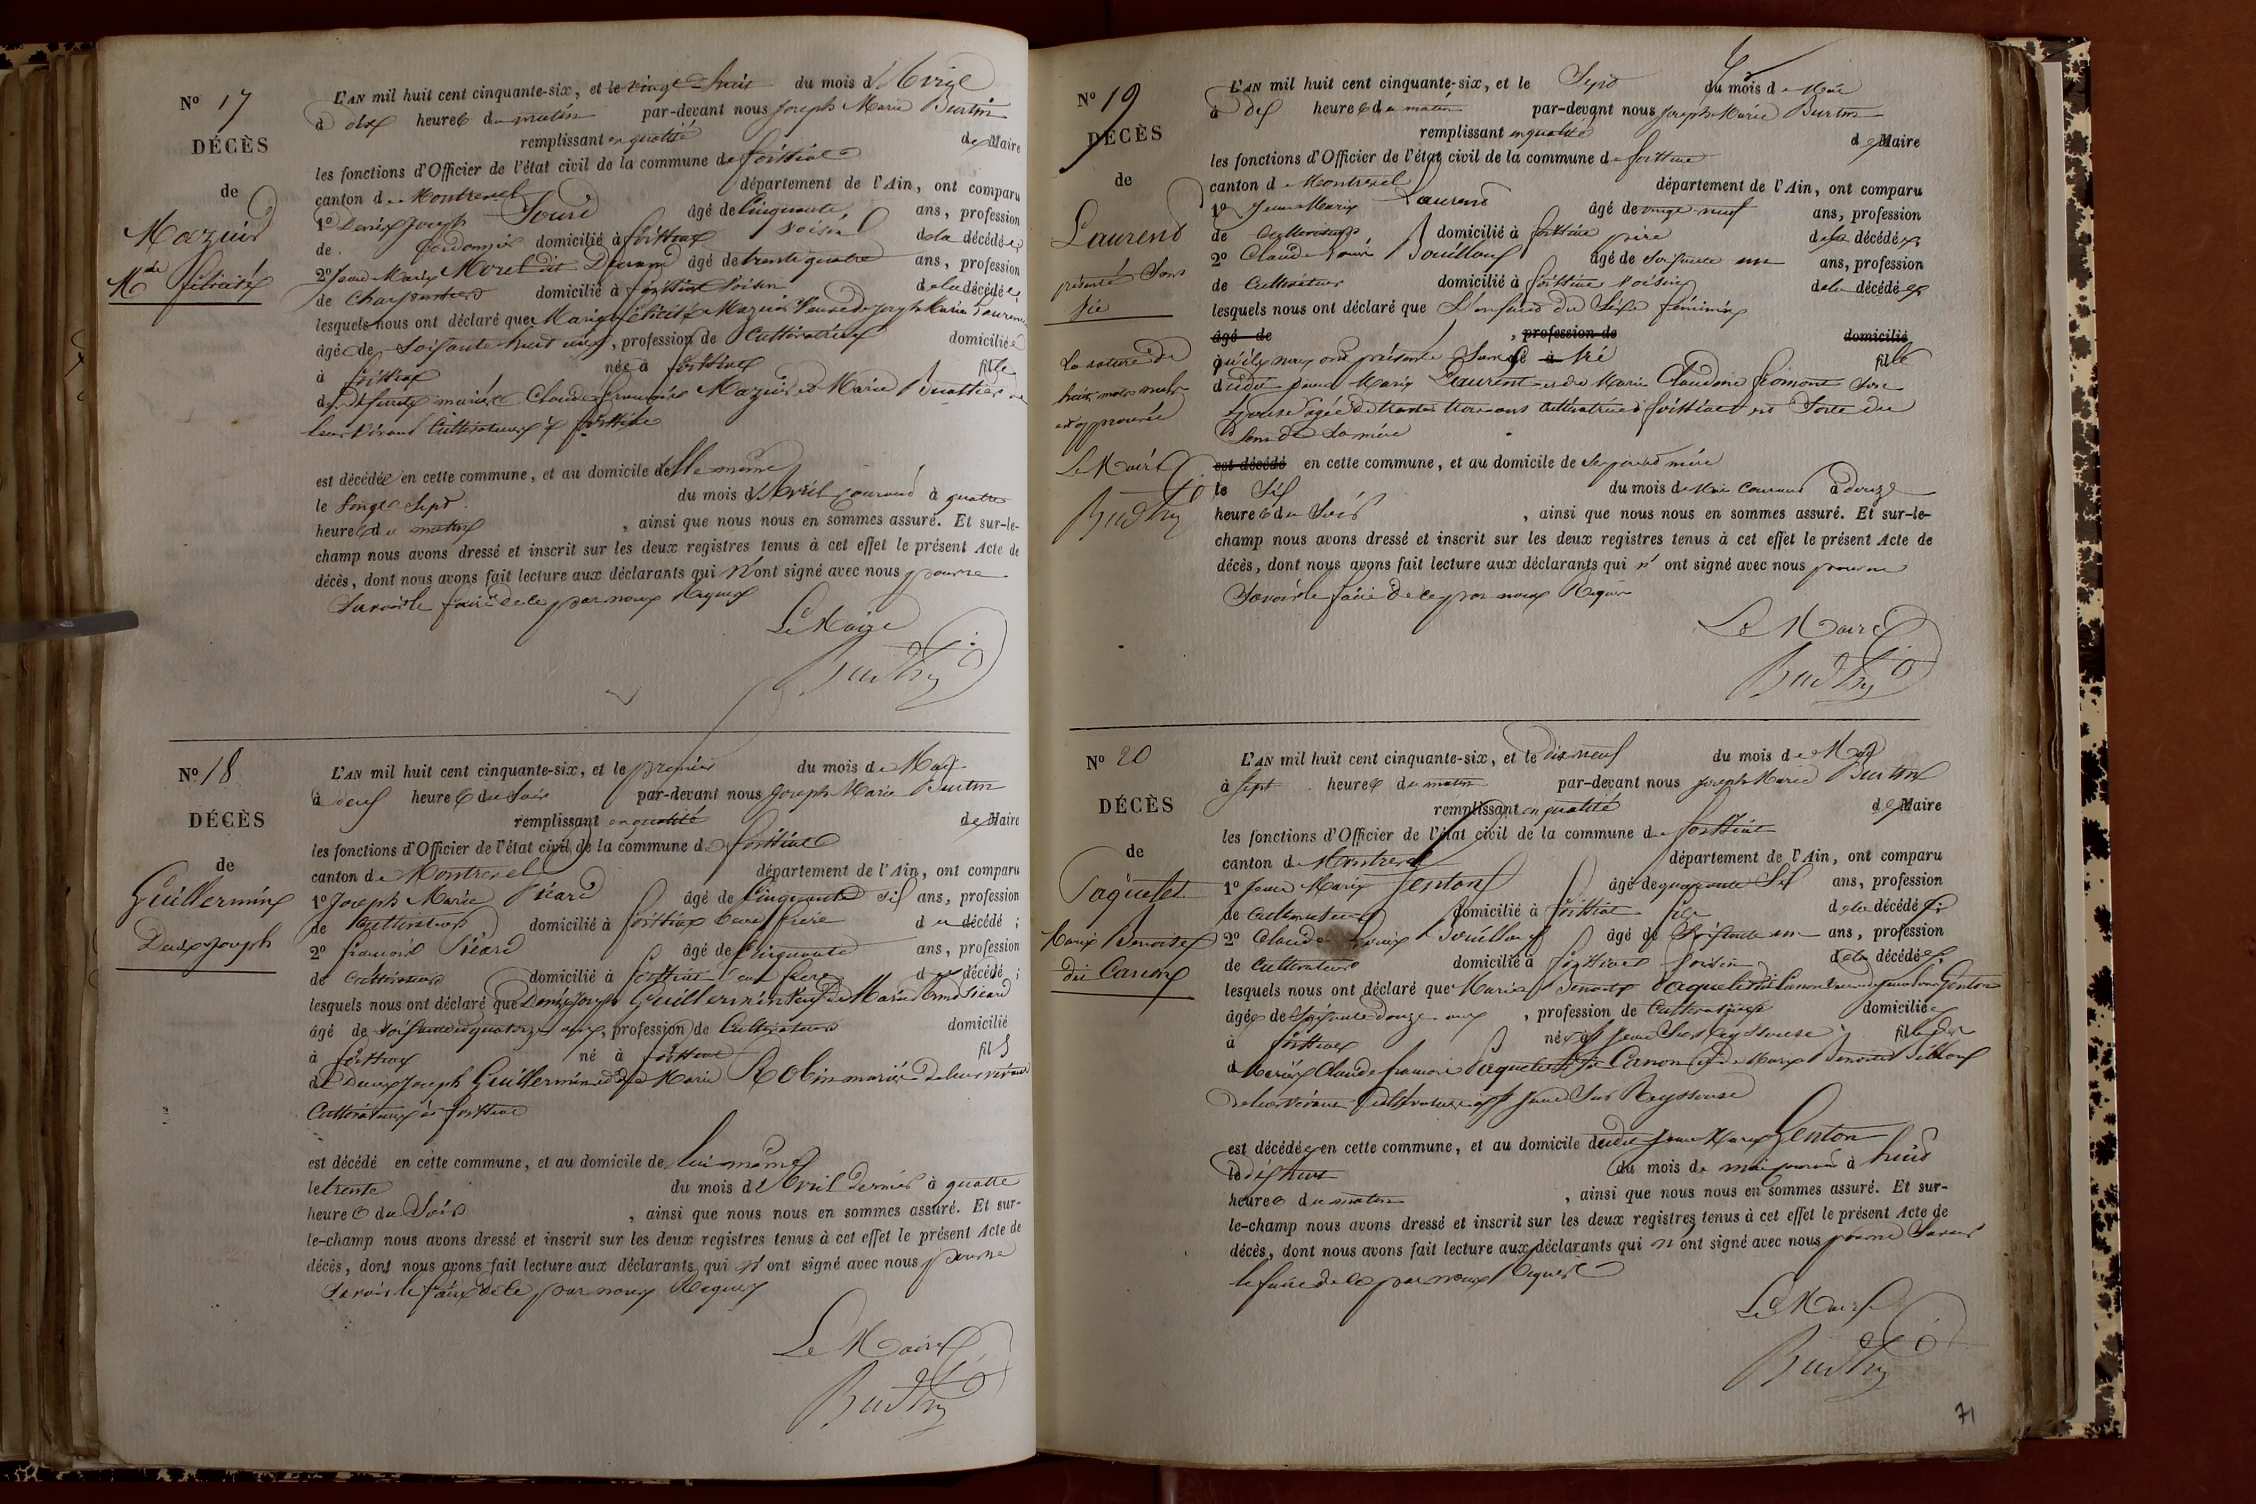 No 17
DÉCÈS
de
Mazuir
Mie félicité
L'AN mil huit cent cinquante-six, et le vingt huit du mois d'Avril
à dix heures du matin par-devant nous Joseph Marie Burtin
remplissant en qualité de Maire
les fonctions d'Officier de l'état civil de la commune de foissiat
canton de Montrevel département de l'Ain, ont comparu
1o Denis Joseph âgé de Cinquante ans, profession
de Cordonnier domicilié à foissiat voisin de la décédée
2o Jean Marie Morel dit Durand âgé de trente quatre ans, profession
de Charpentier domicilié à foissiat voisin de la décédée
lesquels nous ont déclaré que Marie félicité Mazuir Veuve de Joseph Marie Laurent
âgée de Soixante huit ans, profession de Cultivatrice domiciliée
à foissiat née à foissiat fille
de défunts mariés Claude françois Mazuir et Marie Buathier de
leur vivant Cultivateurs à foissiat
est décédée en cette commune, et au domicile d'elle même
le vingt Sept du mois d'Avril courant à quatre
heures du matin, ainsi que nous nous en sommes assuré. Et sur-le-
champ nous avons dressé et inscrit sur les deux registres tenus à cet effet le présent Acte de
décès, dont nous avons fait lecture aux déclarants qui n'ont signé avec nous pour ne
Savoir le faire de ce par nous Requis
Le Maire
Burtin
No 18
DÉCÈS
de
Guillermin
Denis Joseph
L'AN mil huit cent cinquante-six, et le premier du mois de Mai
à deux heures du Soir par-devant nous Joseph Marie Burtin
remplissant en qualité de Maire
les fonctions d'Officier de l'état civil de la commune de foissiat
canton de Montrevel département de l'Ain, ont comparu
1o Joseph Marie Picard âgé de Cinquante Six ans, profession
de Cultivateur domicilié à foissiat beau frère du décédé ;
2o françois Picard âgé de Cinquante ans, profession
de Cultivateur domicilié à foissiat beau frère du décédé ;
lesquels nous ont déclaré que Denis Joseph Guillermin Veuf de Marie Picard
âgé de Soixante et quatorze ans, profession de Cultivateur domicilié
à foissiat né à foissiat fils
de Denis Joseph Guillermin et de Marie Robin mariés de leur vivant
Cultivateurs à foissiat
est décédé en cette commune, et au domicile de lui même
le trente du mois d'Avril dernier à quatre
heures du Soir, ainsi que nous nous en sommes assuré. Et sur-
le-champ nous avons dressé et inscrit sur les deux registres tenus à cet effet le présent Acte de
décès, dont nous avons fait lecture aux déclarants qui n'ont signé avec nous pour ne
Savoir le faire de ce par nous Requis
Le Maire
Burtin
No 19
DÉCÈS
de
Laurent
présenté Sans
vie
La rature de
huit mots nuls
est approuvée
Le Maire
Burtin
L'AN mil huit cent cinquante-six, et le Sept du mois de Mai
à dix heures du matin par-devant nous Joseph Marie Burtin
remplissant en qualité de Maire
les fonctions d'Officier de l'état civil de la commune de foissiat
canton de Montrevel département de l'Ain, ont comparu
1o Jean Marie Laurent âgé de vingt neuf ans, profession
de Cultivateur domicilié à foissiat père de la décédée
2o Claude Bouilloux âgé de Soixante un ans, profession
de Cultivateur domicilié à foissiat voisin de la décédée
lesquels nous ont déclaré que L'enfant du Sexe féminin
âgé de , profession de domicilié
qu'ils nous ont présenté Sans vie né à fille
dudit Jean Marie Laurent et de Marie Claudine Son
Epouse agée de trente trois ans Cultivatrice à foissiat est Sorti du
Sein de sa mère
est décédé en cette commune, et au domicile de Ses père et mère
le Six du mois de Mai Courant à douze
heures du Soir, ainsi que nous nous en sommes assuré. Et sur-le-
champ nous avons dressé et inscrit sur les deux registres tenus à cet effet le présent Acte de
décès, dont nous avons fait lecture aux déclarants qui n'ont signé avec nous pour ne
Savoir le faire de ce par nous Requis
Le Maire
Burtin
No 20
DÉCÈS
de
Paquelet
Marie Benoite
dit Canon
L'AN mil huit cent cinquante-six, et le dix neuf du mois de Mai
à Sept heures du matin par-devant nous Joseph Marie Burtin
remplissant en qualité de Maire
les fonctions d'Officier de l'état civil de la commune de foissiat
canton de Montrevel département de l'Ain, ont comparu
1o Jean Marie Genton âgé de quarante Six ans, profession
de Cultivateur domicilié à foissiat fils de la décédée ;
2o Claude Bouilloux âgé de Soixante un ans, profession
de Cultivateur domicilié à foissiat voisin de la décédée ;
lesquels nous ont déclaré que Marie Benoite Paquelet dit Canon Veuve de Genton
âgée de Soixante douze ans, profession de Cultivatrice domiciliée
à foissiat née à St Jean Sur Reyssouse fille de
Mariés Claude françois Paquelet dit Canon et de Marie Benoite
de leur vivant Cultivateurs à St Jean Sur Reyssouse
est décédée en cette commune, et au domicile dudit Jean Marie Genton
le dix huit du mois de mai courant à huit
heures du matin, ainsi que nous nous en sommes assuré. Et sur-
le-champ nous avons dressé et inscrit sur les deux registres tenus à cet effet le présent Acte de
décès, dont nous avons fait lecture aux déclarants qui n'ont signé avec nous pour ne Savoir
le faire de ce par nous Requis
Le Maire
Burtin
71